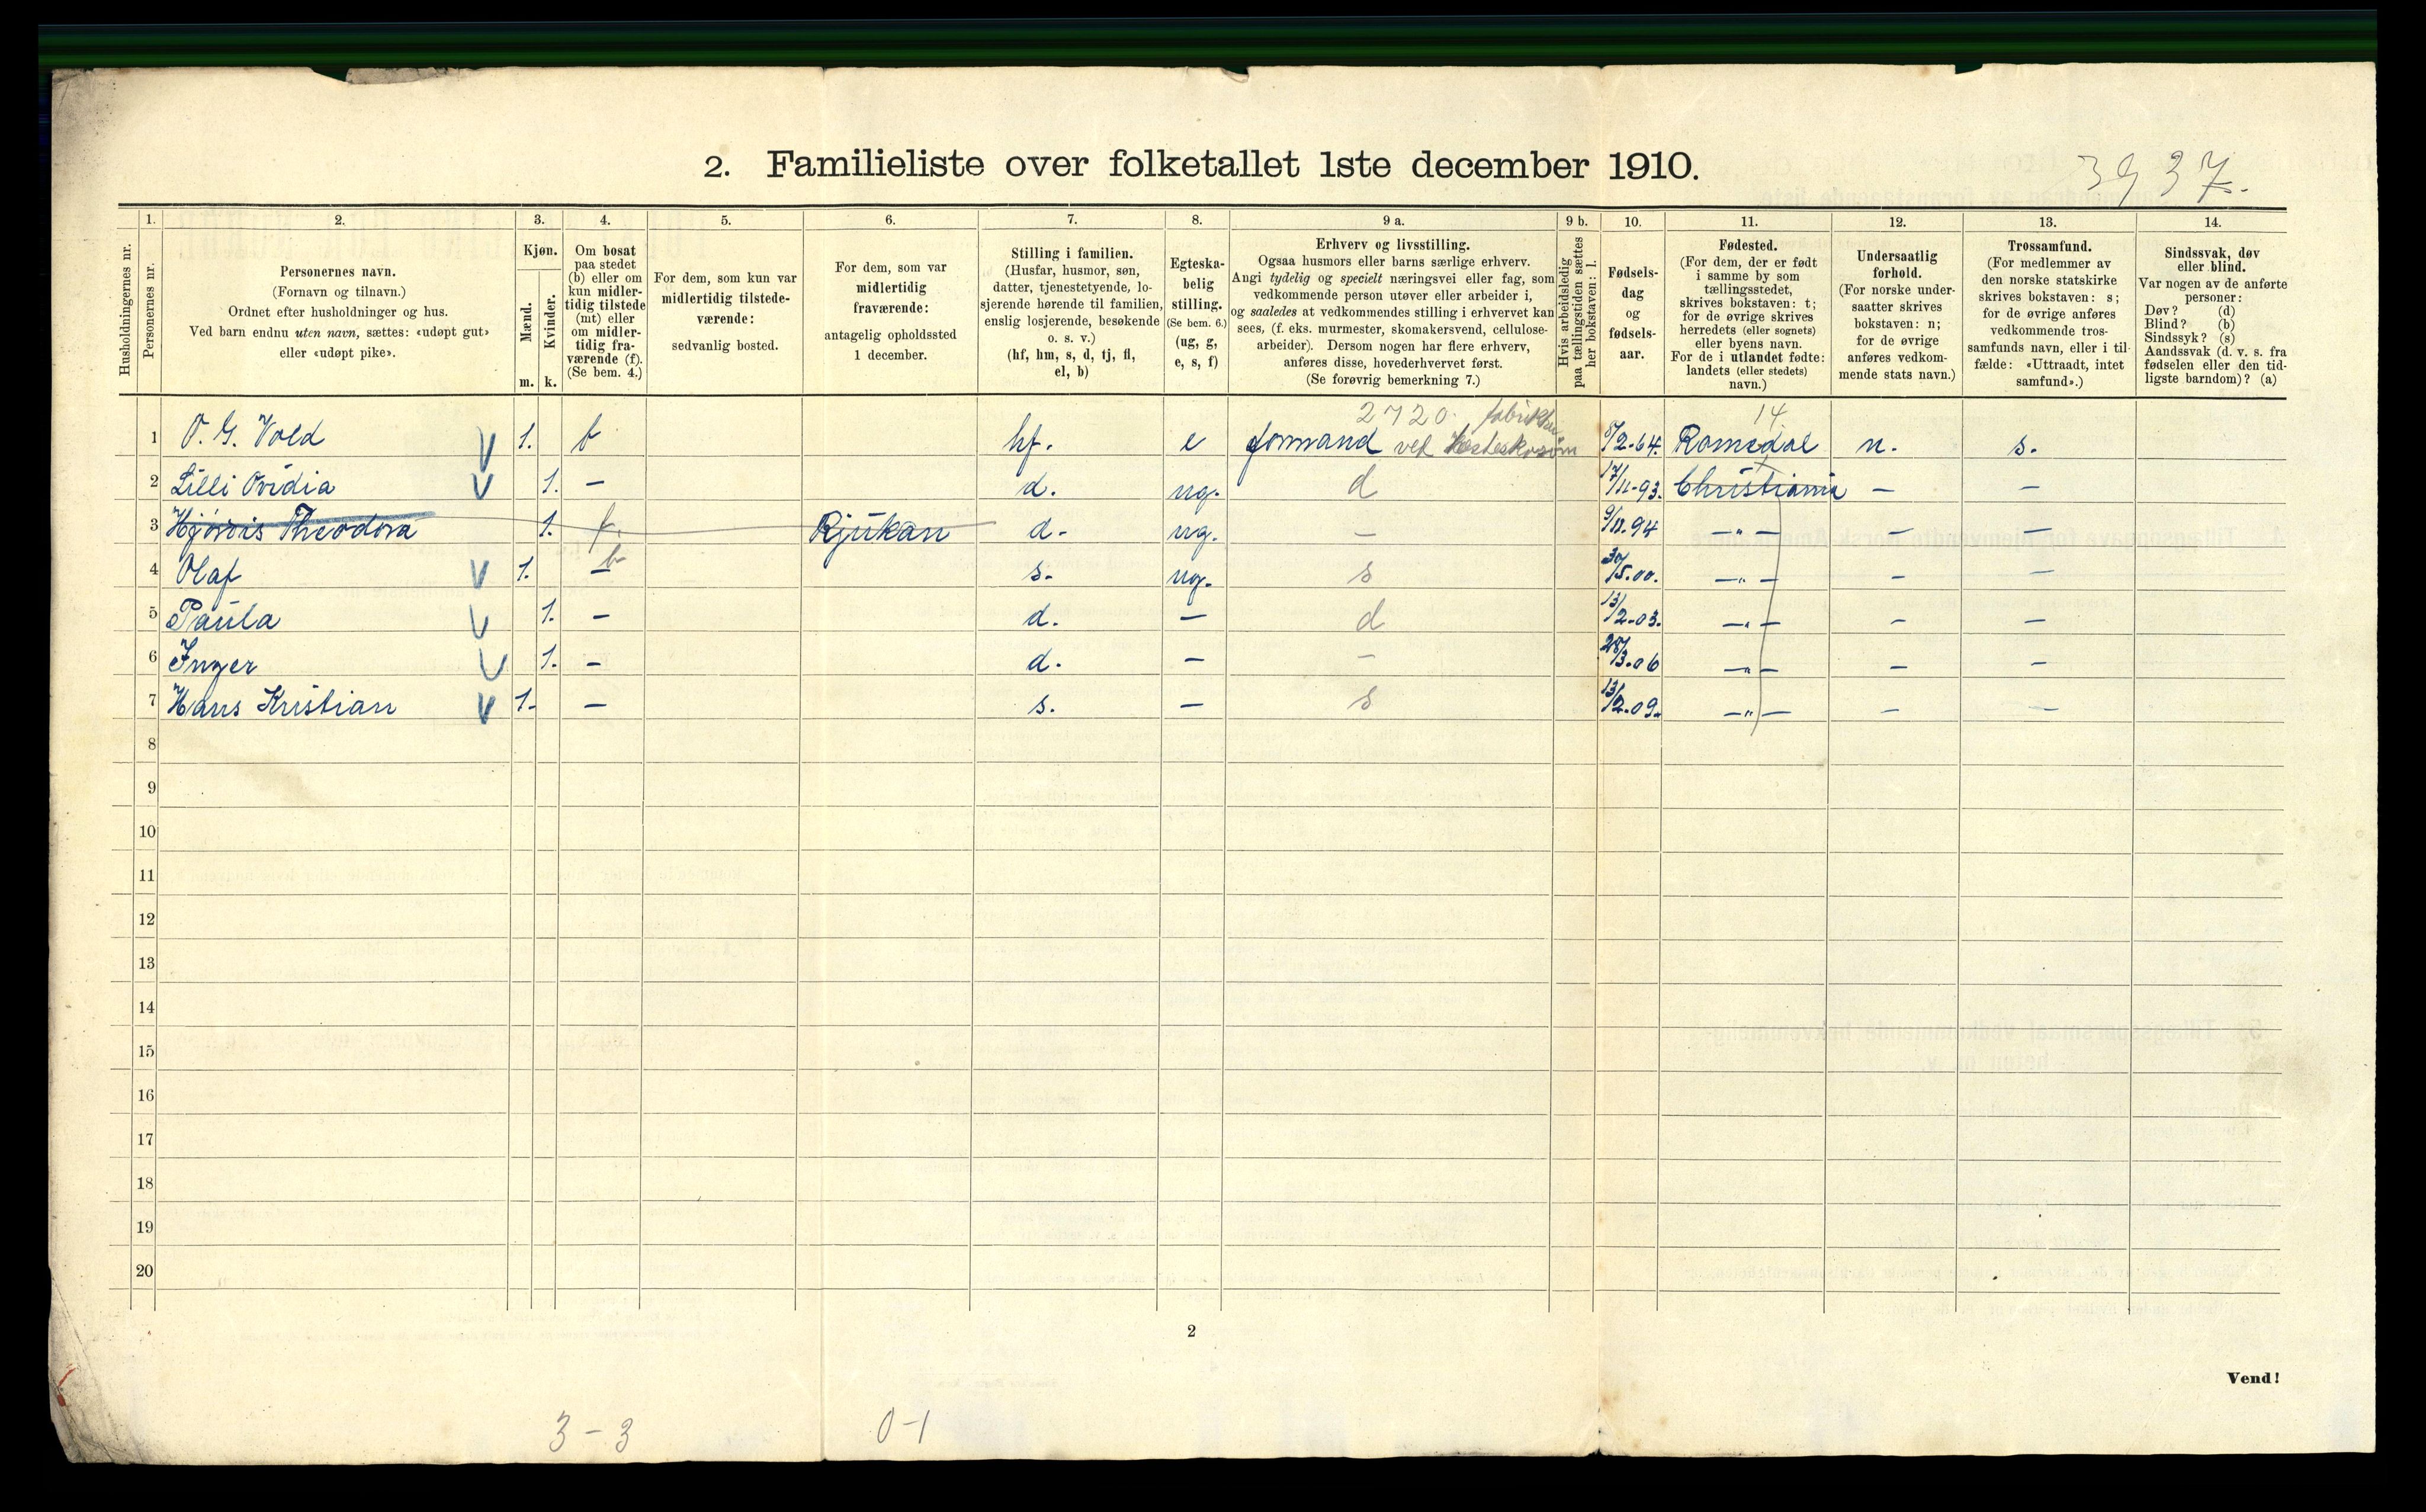 2. Familieliste over folketallet 1ste december 1910.
3937.
Husholdningernes nr.
1.
Personernes nr.
2.
Personernes navn.
(Fornavn og tilnavn.)
Ordnet efter husholdninger og hus.
Ved barn endnu uten navn, sættes: «udøpt gut»
eller «udøpt pike».
3.
Kjøn.
Mænd.
Kvinder.
m. k.
4.
Om bosat
paa stedet
(b) eller om
kun midler-
tidig tilstede
(mt) eller
om midler-
tidig fra-
værende (f).
(Se bem. 4.)
5.
For dem, som kun var
midlertidig tilstede-
værende:
sedvanlig bosted.
6.
For dem, som var
midlertidig
fraværende:
antagelig opholdssted
1 december.
7.
Stilling i familien.
(Husfar, husmor, søn,
datter, tjenestetyende, lo-
sjerende hørende til familien,
enslig losjerende, besøkende
o. s. v.)
(hf, hm, s, d, tj, fl,
el, b)
8.
Egteska-
belig
stilling.
(Se bem. 6.)
(ug, g,
e, s, f)
9 a.
Erhverv og livsstilling.
Ogsaa husmors eller barns særlige erhverv.
Angi tydelig og specielt næringsvei eller fag, som
vedkommende person utøver eller arbeider i,
og saaledes at vedkommendes stilling i erhvervet kan
sees, (f. eks. murmester, skomakersvend, cellulose-
arbeider). Dersom nogen har flere erhverv,
anføres disse, hovederhvervet først.
(Se forøvrig bemerkning 7.)
9 b.
Hvis arbeidsledig
paa tællingstiden sættes
her bokstaven: l.
10.
Fødsels-
dag
og
fødsels-
aar.
11.
Fødested.
(For dem, der er født
i samme by som
tællingsstedet,
skrives bokstaven: t;
for de øvrige skrives
herredets (eller sognets)
eller byens navn.
For de i utlandet fødte:
landets (eller stedets)
navn.)
12.
Undersaatlig
forhold.
(For norske under-
saatter skrives
bokstaven: n;
for de øvrige
anføres vedkom-
mende stats navn.)
13.
Trossamfund.
(For medlemmer av
den norske statskirke
skrives bokstaven: s;
for de øvrige anføres
vedkommende tros-
samfunds navn, eller i til-
fælde: «Uttraadt, intet
samfund».)
14.
Sindssvak, døv
eller blind.
Var nogen av de anførte
personer:
Døv? (d)
Blind? (b)
Sindssyk? (s)
Aandssvak (d. v. s. fra
fødselen eller den tid-
ligste barndom)? (a)
2720 14
1 O. G. Vold V 1. b hf. e formand ved Hesteskosøm 8/2-64. Romsdal n. s.
2 Lilli Ovidia V 1. – d. ug. d 17/11-93. Christiania – –
3 Hjørdis Theodora 1. f. Rjukan d- ug. – 9/12.94 –"– – –
b
4 Olaf V 1. – s- ug. s 30/5.00. –"– – –
5 Paula V 1. – d. – d 13/2-03. –"– – –
6 Inger V 1. – d. – – 28/3.06 –"– – –
7 Hans Kristian V 1- – s. – s 13/2.09. –"– – –
8
9
10
11
12
13
14
15
16
17
18
19
20
2
Vend!
3-3 0-1